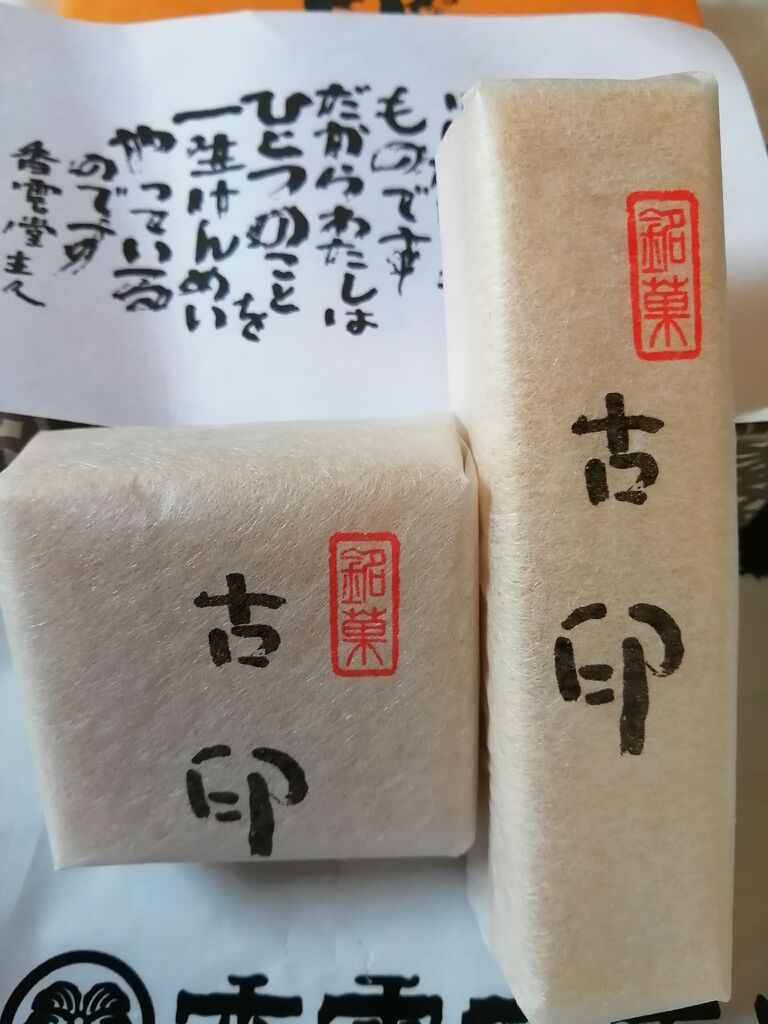 ものです
だからわたしは
ひとつのことを
一生けんめい
やっている
のです
香雲堂主人
銘菓
古印
銘菓
古印
香雲堂